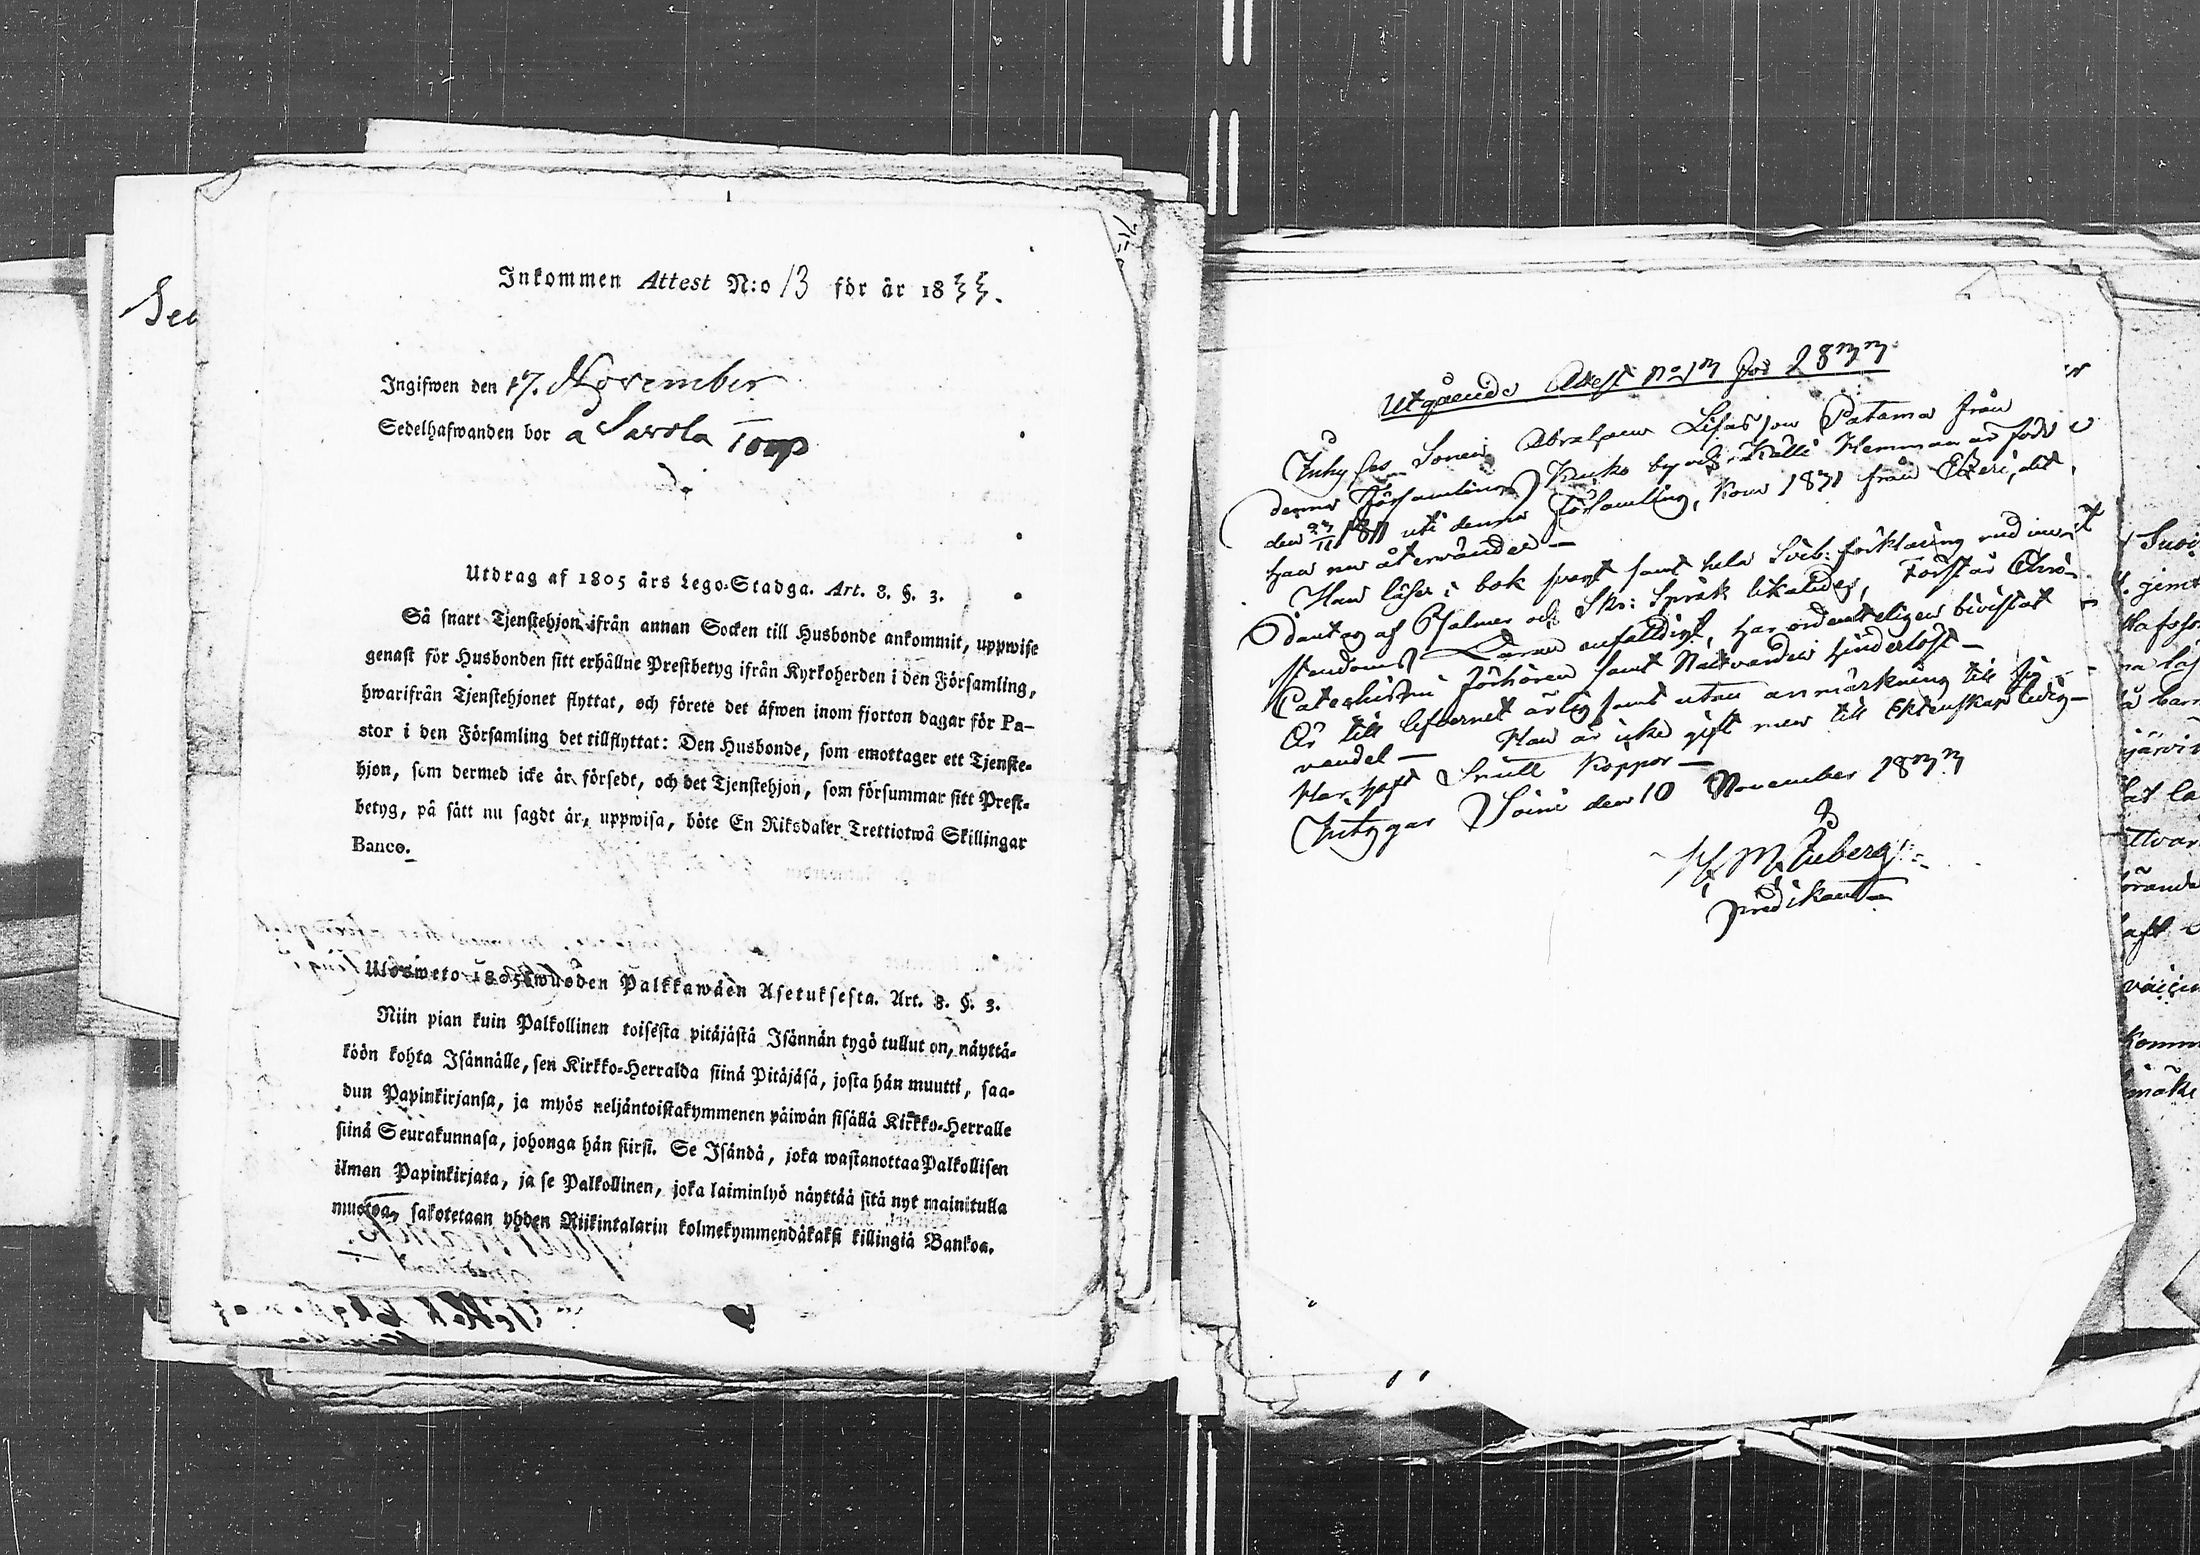 Inkommen Attest N:o 13 för år 1833.
Ingifwen den 17. November
Sedelhafwanden bor å Savola Torp
Utdrag af 1805 års Lego-Stadga. Art. 8. §. 3.
Så snart Tjenstehjon ifrån annan Socken till Husbonde ankommit, uppwise
genast för Husbonden sitt erhållne Prestbetyg ifrån Kyrkoherden i den Församling,
hwarifrån Tjenstehjonet flyttat, och förete det äfwen inom fjorton dagar för Pa-
stor i den Församling det tillflyttat: Den Husbonde, som emottager ett Tjenste-
hjon, som dermed icke är försedt, och det Tjenstehjon, som försummar sitt Prest-
betyg, på sätt nu sagdt är, uppwisa, böte En Riksdaler Trettiotwå Skillingar
Banco.
Ulosweto 1805 wuoden Palkkawäen Asetuksesta. Art. 8. §. 3.
Niin pian kuin Palkollinen toisesta pitäjästä Isännän tygö tullut on, näyttä-
köön kohta Isännälle, sen Kirkko-Herralda siinä Pitäjäsä, josta hän muutti, saa-
dun Papinkirjansa, ja myös neljäntoistakymmenen päiwän sisällä Kirkko-Herralle
siinä Seurakunnasa, johonga hän siirsi. Se Isändä, joka wastanottaa Palkollisen
ilman Papinkirjata, ja se Palkollinen, joka laiminlyö näyttää sitä nyt mainitulla
muotoa, sakotetaan yhden Riikintalarin kolmekymmendäkaksi killingiä Bankoa.
Utgående Attest No 13 för 1833
Inhyses Sonen Abraham Patama från
denna Församlings Kuko by och Källi Hemman är född
den 1811 uti denna Församling, kom 1831 från Etzeri, dit
han nu återvänder —
Han läser i bok samt hela Sveb: förklaring med
af Psalmer och Skr: Språk likaledes, Förstår Chri-
stendoms Läran enfaldigt, har ordenteligen bivistat
Catechismi förhören samt Nattvarden hinderlöst —
Är till lefvernet ärlig samt utan anmärkning till sin
vandel — Han är icke gift men till Ektenskap ledig —
Har haft Koppor —
Intygar Soini den 10 November 1833
predikant